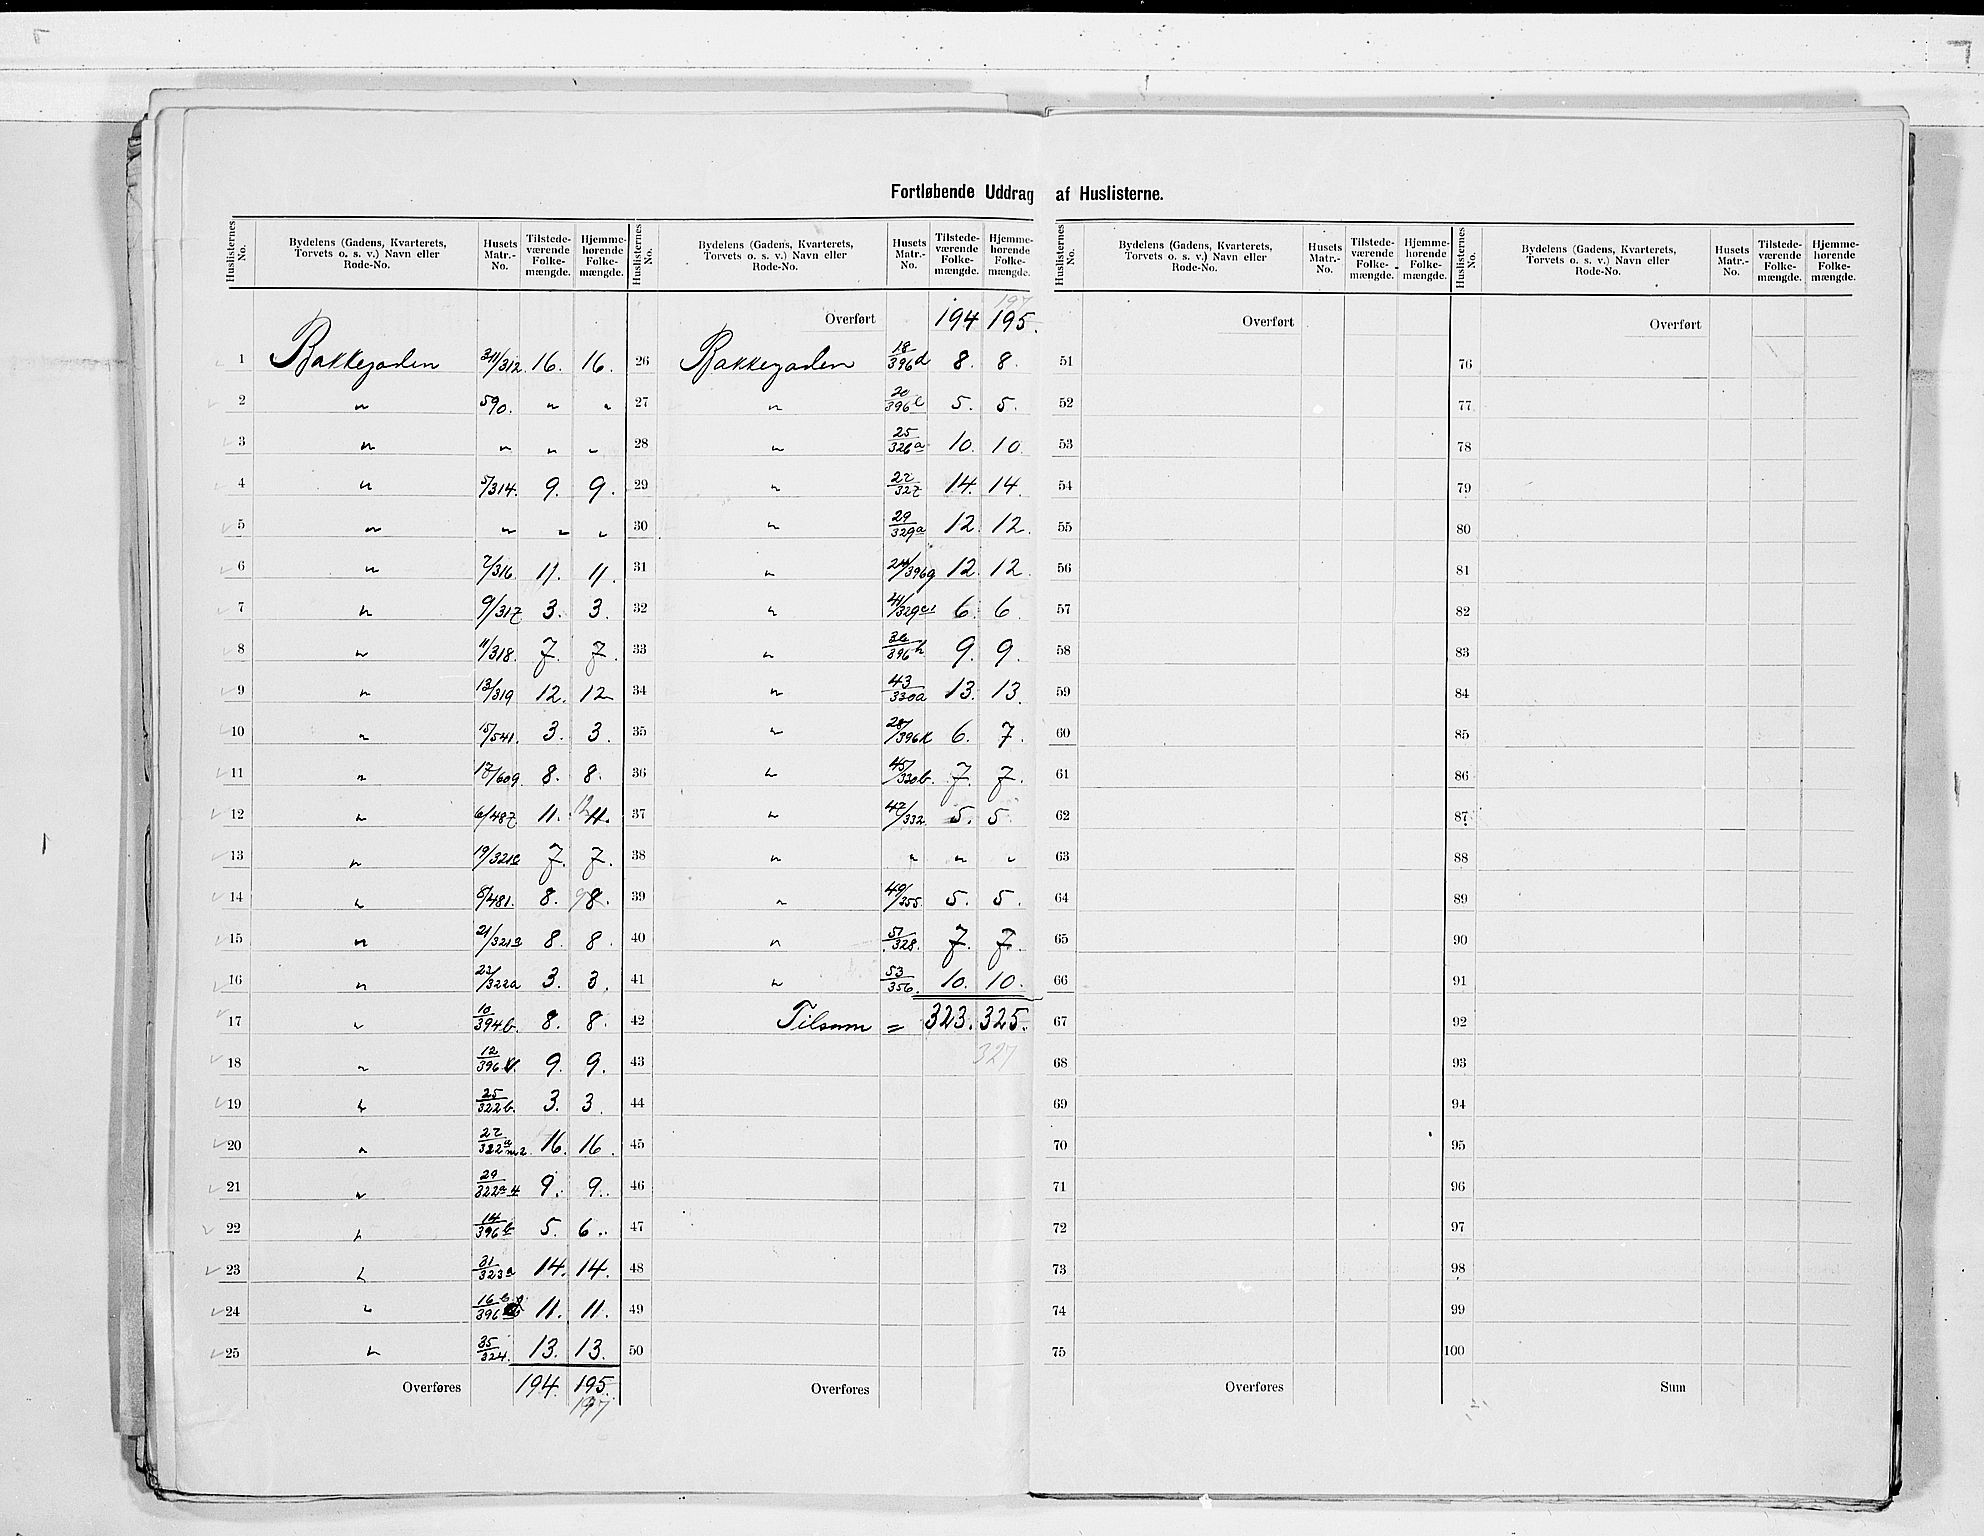 Fortløbende Uddrag af Huslisterne.
Huslisternes No. Bydelens (Gadens, Kvarterets, Torvets o. s. v.) Navn eller Rode-No. Husets Matr.-No. Tilstedeværende Folkemængde. Hjemmehørende Folkemængde. Huslisternes No. Bydelens (Gadens, Kvarterets, Torvets o. s. v.) Navn eller Rode-No. Husets Matr.-No. Tilstedeværende Folkemængde. Hjemmehørende Folkemængde. Huslisternes No. Bydelens (Gadens, Kvarterets, Torvets o. s. v.) Navn eller Rode-No. Husets Matr.-No. Tilstedeværende Folkemængde. Hjemmehørende Folkemængde. Huslisternes No. Bydelens (Gadens, Kvarterets, Torvets o. s. v.) Navn eller Rode-No. Husets Matr.-No. Tilstedeværende Folkemængde. Hjemmehørende Folkemængde.
197
Overført 194 195. Overført Overført
1 Bakkegaden 16. 16. 26 Bakkegaden 18/396d 8. 8. 51 76
2 " 590. " " 27 " 20/396 5. 5. 52 77
3 " " " " 28 " 25/326a 10. 10 53 78
4 " 5/314. 9. 9. 29 " 27/327 14. 14. 54 79
5 " " " " 30 " 29/329a 12. 12. 55 80
6 " 7/316 11. 11. 31 " 24/396g 12. 12. 56 81
7 " 9/317 3. 3. 32 " 6. 6. 57 82
8 " 11/318. 7. 7. 33 " 9. 9. 58 83
9 " 13/319 12. 12 34 " 43/330a 13. 13. 59 84
10 " 15/541. 3. 3. 35 " 6. 7. 60 85
11 " 17/609. 8. 8. 36 " 45/330b. 7. 7. 61 86
12 " 6/487 11. 12 11. 37 " 47/332. 5. 5 62 87
13 " 7. 7. 38 " " " " 63 88
14 " 8/481. 8. 9 8. 39 " 49/355. 5. 5. 64 89
15 " 8. 8. 40 " 51/328. 7. 7. 65 90
16 " 23/322a 3. 3. 41 " 53/356. 10. 10. 66 91
17 " 10/394b. 8. 8. 42 Tilsam = 323. 325. 67 92
18 " 9. 9. 43 327 68 93
19 " 25/322b. 3. 3. 44 69 94
20 " 16. 16. 45 70 95
21 " 29/322a4 9. 9. 46 71 96
22 " 14/396b 5. 6. 47 72 97
23 " 31/323a 14. 14. 48 73 98
24 " 11. 11. 49 74 99
25 " 35/324. 13. 13. 50 75 100
Overføres 194. 195. Overføres Overføres Sum
197